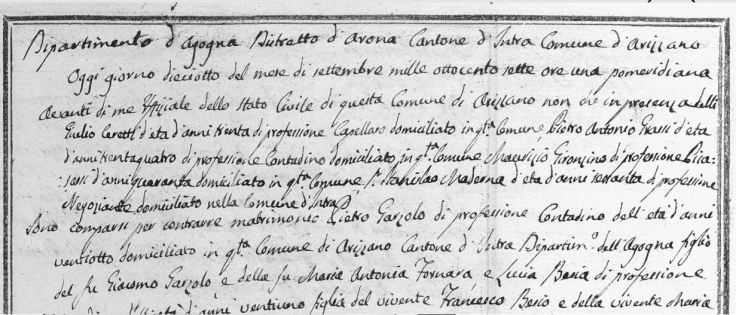 Dipartimento d'Agogna Distretto d'Arona Cantone d'Intra Comune d'Arizzano
Oggi giorno dieciotto del mese di settembre mille ottocento sette ore una pomeridiana
Avanti di me Uffiziale dello stato Civile di questa Comune di Arizzano non che in presenza delli
Giulio Ceretti d'età d'anni trenta di professione Capellaro domiciliato in qta. Comune Pietro Antonio Grassi d'età
d'anni trentaquatro di professione Contadino domiciliato in qta. Comune Maurizio di professione
d'anni quaranta domiciliato in qta. Comune, Stanilao Maderna d'età d'anni sessanta di professine
Negoziante domiciliato nella Comune d'Intra
Sono comparsi per contrarre matrimonio Pietro Garzolo di professione Contadino dell'età d'anni
ventiotto domiciliato in qta. Comune di Arizzano Cantone d'Intra Dipartimo. dell'Agogna figlio
del fu Giacomo Garzolo e della fu Maria Antonia Fornara e Lucia Besia di professione
d'anni ventiuno figlia del vivente Francesco Besio e della vivente Maria